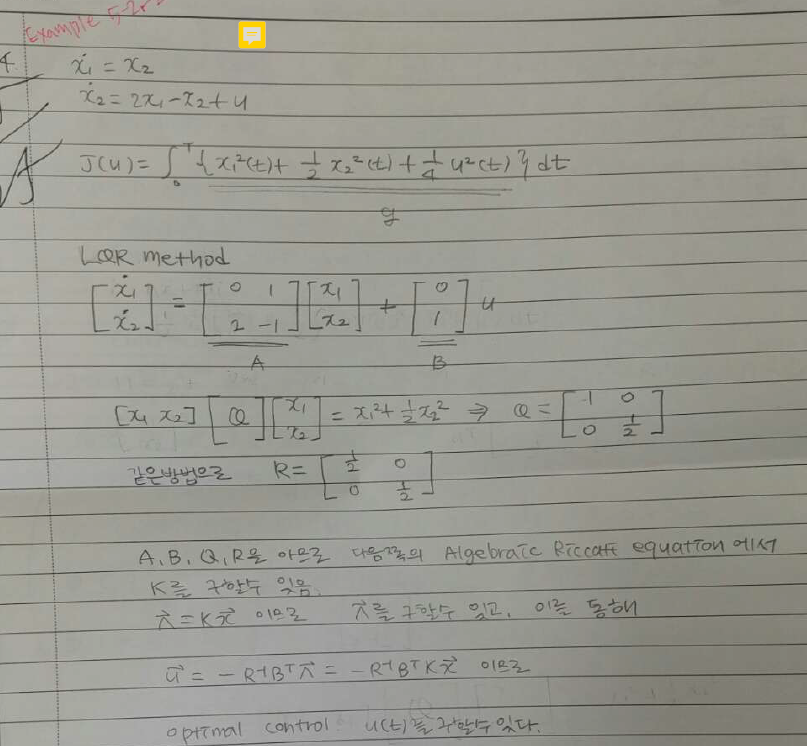 Example 5-2
4. ẋ₁ = x₂
ẋ₂ = 2x₁ - x₂ + u
J(u) = ∫₀ᵀ { x₁²(t) + 1/2 x₂²(t) + 1/4 u²(t) } dt
g
LQR method
[ẋ₁ ẋ₂] = [0 1; 2 -1] [x₁ x₂] + [0 1] u
A B
[x₁ x₂] [Q] [x₁ x₂] = x₁² + 1/2 x₂² ⇒ Q = [1 0; 0 1/2]
같은방법으로 R = [1/2 0; 0 1/2]
A, B, Q, R을 아므로 다음쪽의 Algebraic Riccati equation에서
K를 구할수 있음.
λ⃗ = Kx⃗ 이므로 λ⃗를 구할수 있고, 이를 통해
u⃗ = -R⁻¹Bᵀλ⃗ = -R⁻¹BᵀKx⃗ 이므로
optimal control u(t)를 구할수 있다.